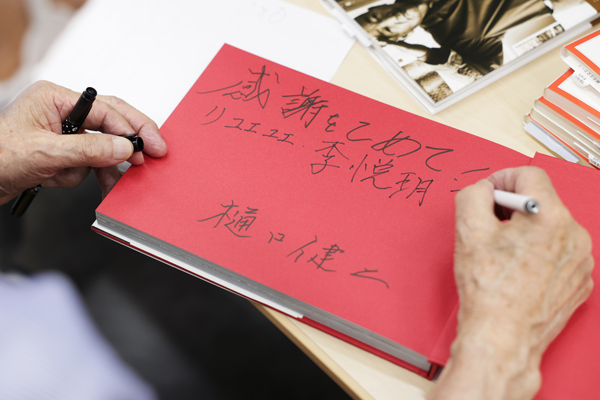 感謝をこめて
リユエユエ. 李悦玥
樋口健二